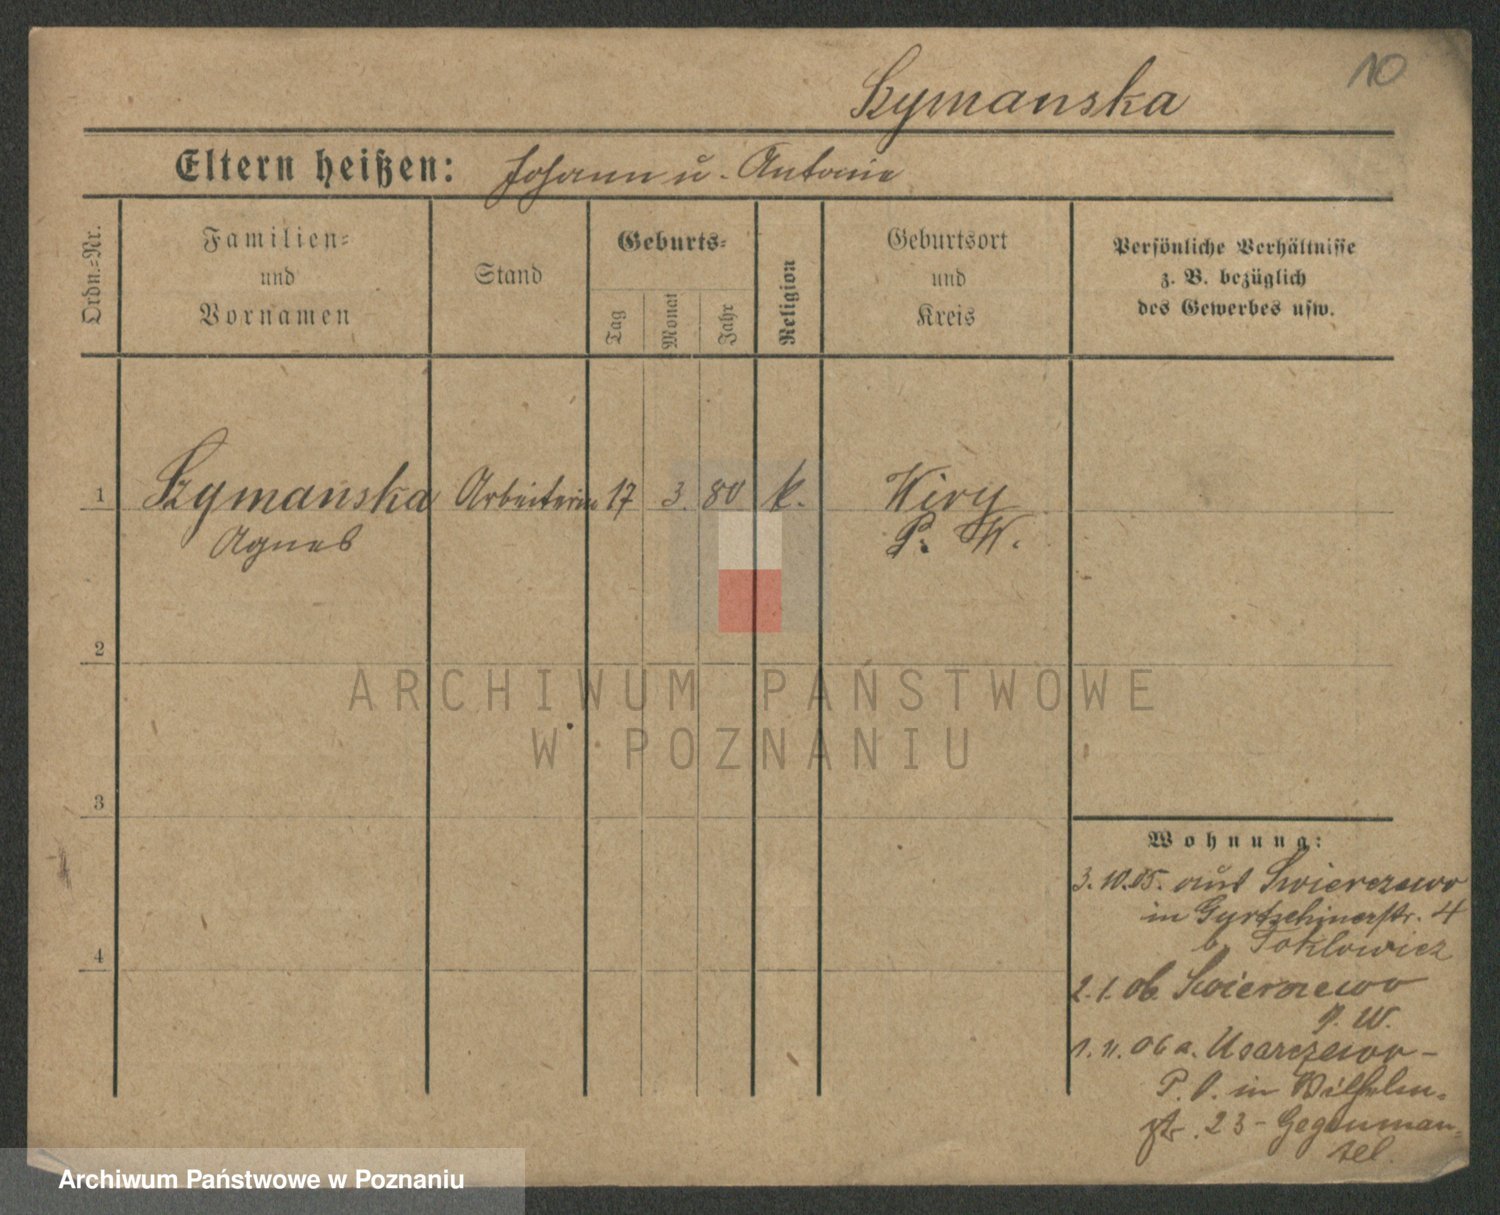 10
Szymanska
Eltern heißen: Johann u. Antonie
Ordn.-Nr.
Familien-
und
Vornamen
Stand
Geburts-
Tag
Monat
Jahr
Religion
Geburtsort
und
Kreis
Persönliche Verhältnisse
z. B. bezüglich
des Gewerbes usw.
1 Szymanska Arbeiterin 17 3. 80 k. Wiry
Agnes P. W.
2
3
4
ARCHIWUM PAŃSTWOWE
W POZNANIU
Wohnung:
3.10.05. aus Swierczewo
in Gurtschinerstr. 4
b.
2.1.06 Swierczewo
P. W.
1.11.06 a. Usarzewo-
P. O. in Wilhelm-
str. 23 -
Archiwum Państwowe w Poznaniu